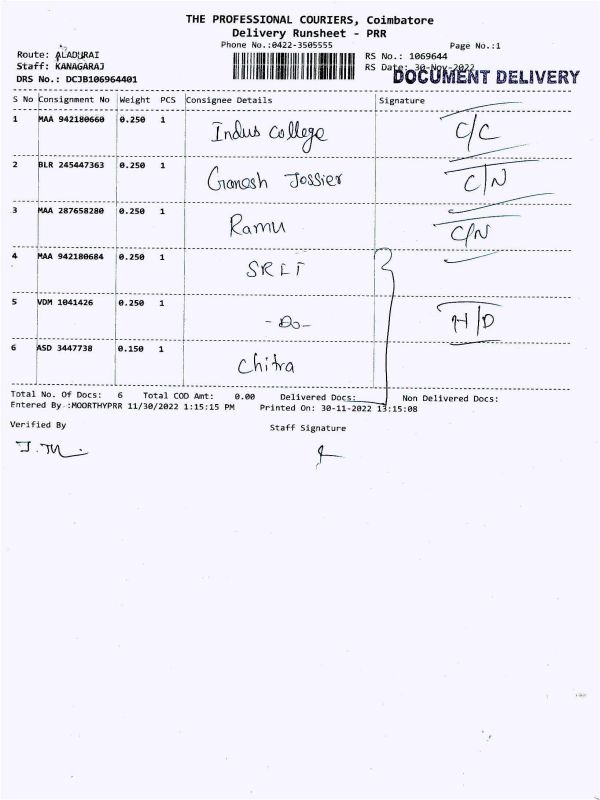 THE PROFESSIONAL COURIERS, Coimbatore
Delivery Runsheet - PRR
Phone No.:0422-3505555
Page No.:1
Route: ALADURAI
RS No.: 1069644
Staff: KANAGARAJ
RS Date: 30-Nov-2022
DRS No.: DCJB106964401
DOCUMENT DELIVERY
S No Consignment No Weight PCS Consignee Details Signature
1 MAA 942180660 0.250 1 Indus College C/C
2 BLR 245447363 0.250 1 Ganesh Jossier C/N
3 MAA 287658280 0.250 1 Ramu C/N
4 MAA 942180684 0.250 1
5 VDM 1041426 0.250 1 -Do- H/D
6 ASD 3447738 0.150 1 Chitra
Total No. Of Docs: 6 Total COD Amt: 0.00 Delivered Docs: Non Delivered Docs:
Entered By :MOORTHYPRR 11/30/2022 1:15:15 PM Printed On: 30-11-2022 13:15:08
Verified By
Staff Signature